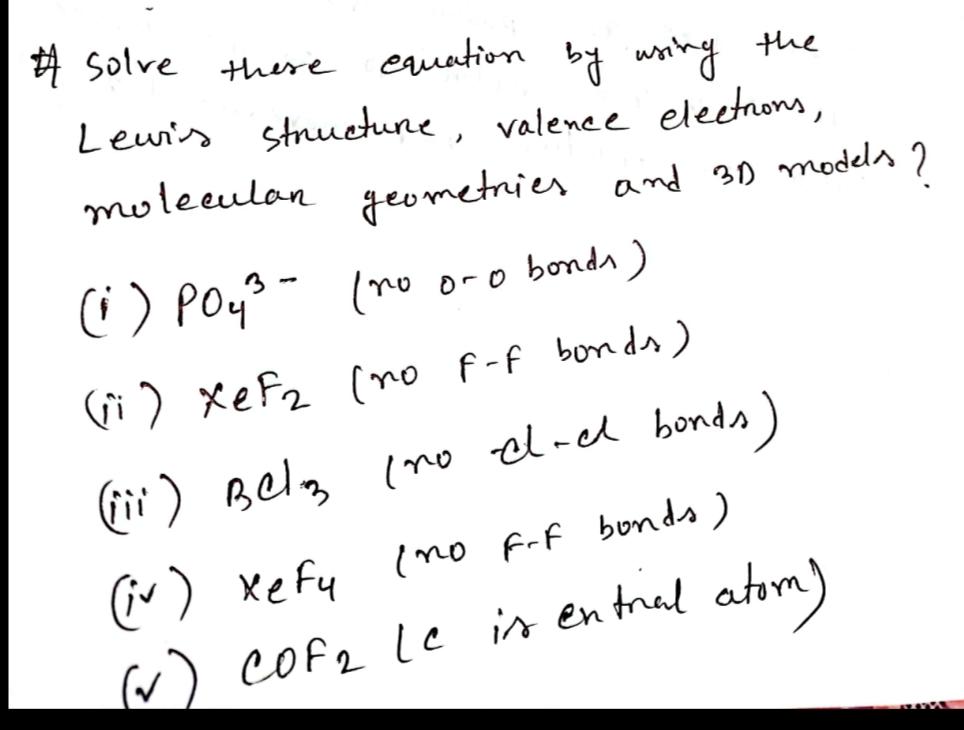 # Solve these equation by using the
Lewis structure, valence electrons,
molecular geometries and 3D models?
(i) PO₄³⁻ (no O-O bonds)
(ii) XeF₂ (no F-F bonds)
(iii) BCl₃ (no Cl-Cl bonds)
(iv) XeF₄ (no F-F bonds)
(v) COF₂ (C is entral atom)